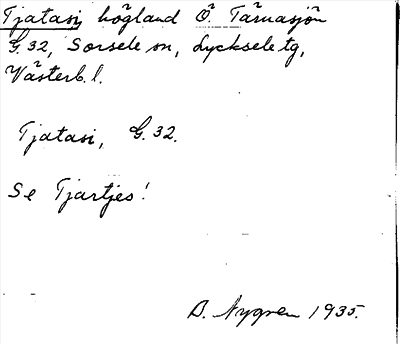 Tjatasi, högland Ö. Tärnasjön
G.32, Sorsele sn, Lycksele tg,
Västerb. l.
Tjatasi, G.32.
Se Tjartjes!
B. Nygren 1935.